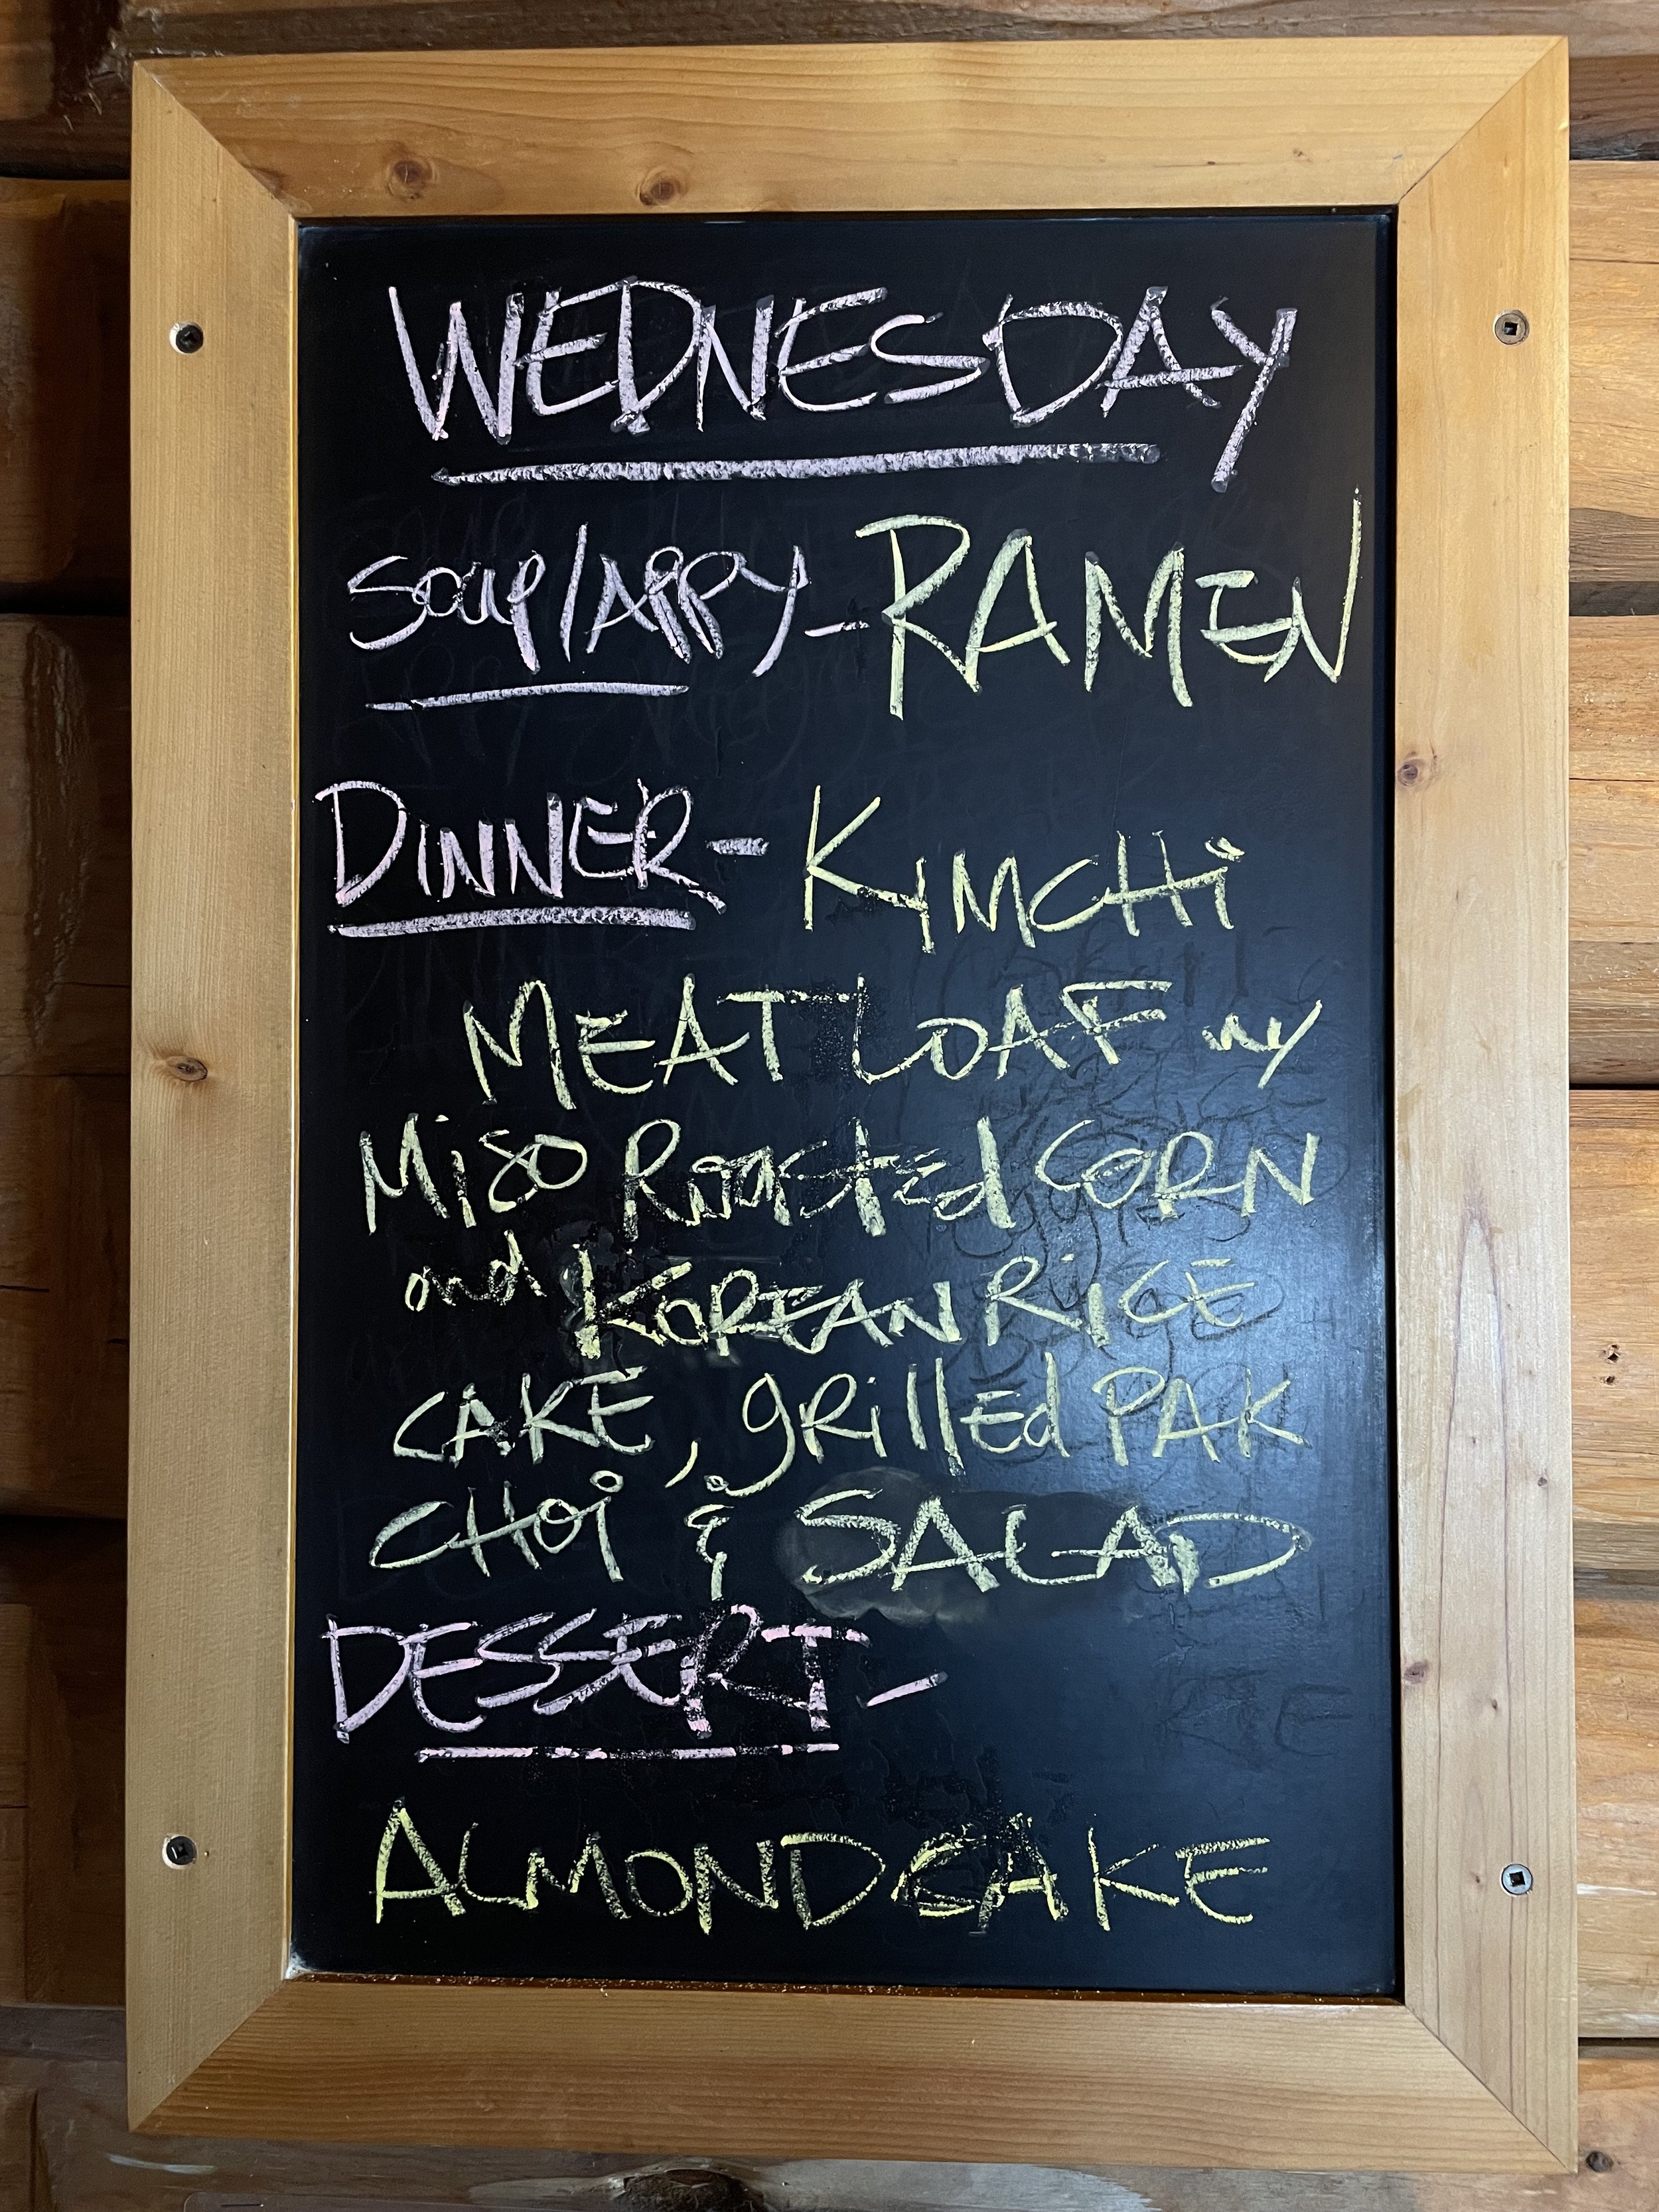 WEDNESDAY
Soup/APPY - RAMEN
DINNER - KIMCHi
MEAT LOAF w/
Miso Roasted CORN
and KOREAN RiCE
CAKE, gRillEd PAK
CHOi & SALAD
DESSERT -
ALMOND CAKE